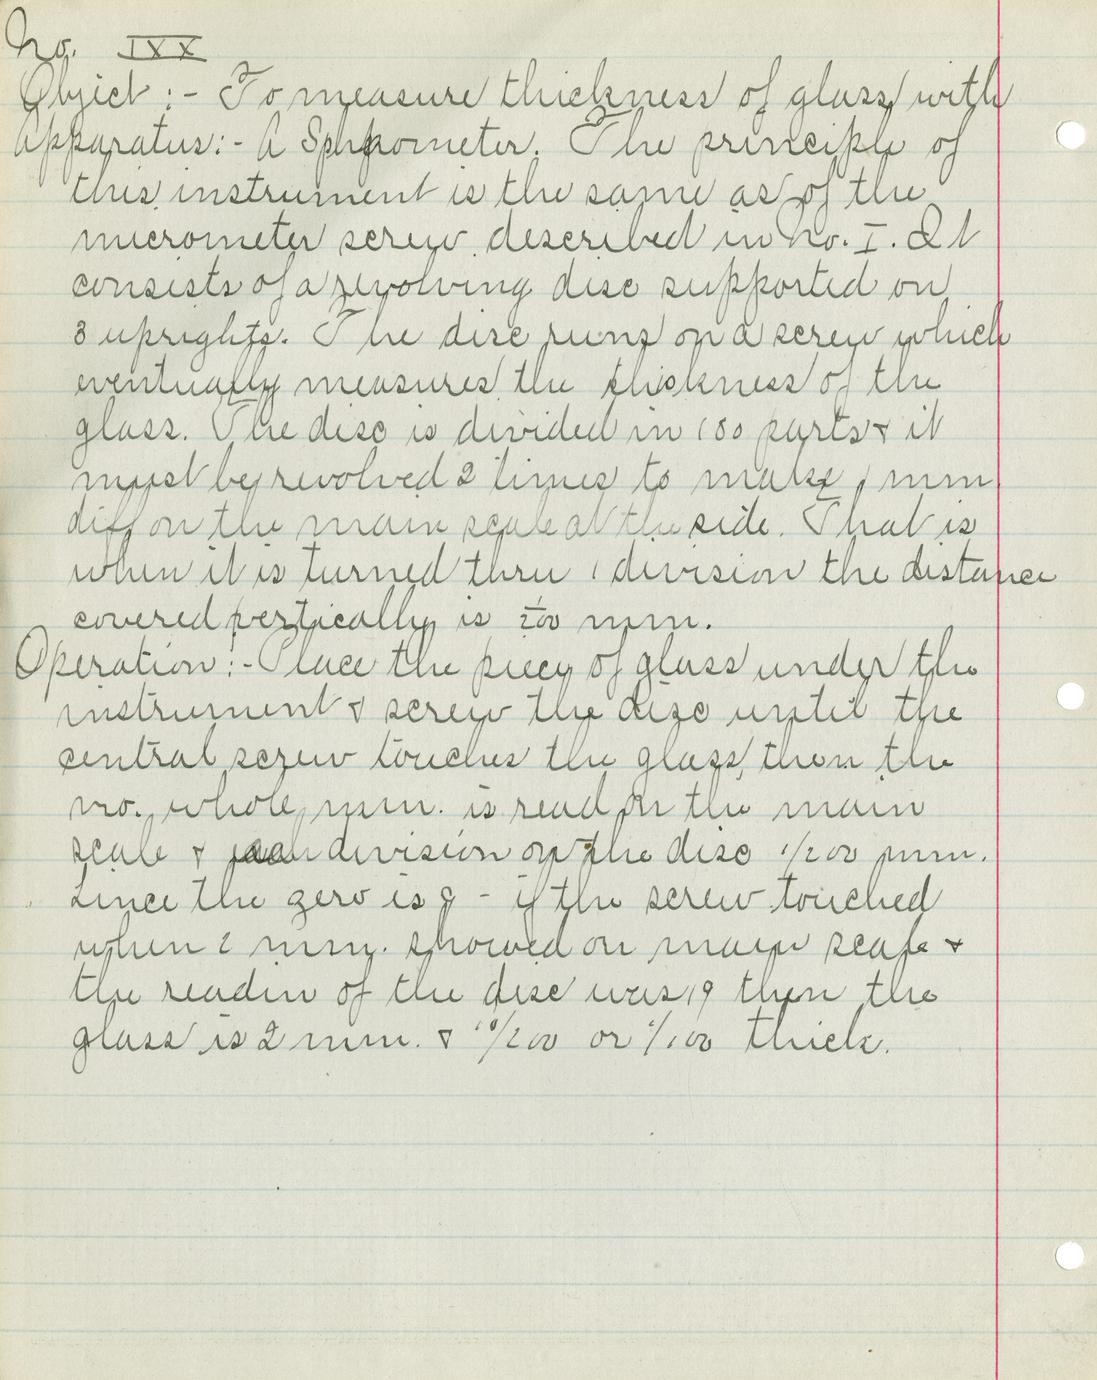 No. IXX
Object :- To measure thickness of glass with
Apparatus:- A Spherometer. The principle of
this instrument is the same as of the
micrometer screw described in No. I. It
consists of a revolving disc supported on
3 uprights. The disc runs on a screw which
eventually measures the thickness of the
glass. The disc is divided in 100 parts & it
must be revolved 2 times to make 1 mm
diff on the main scale at the side. That is
when it is turned thru 1 division the distance
covered vertically is 1/200 mm.
Operation:- Place the piece of glass under the
instrument & screw the disc until the
central screw touches the glass, then the
no. whole mm. is read on the main
scale & each division on the disc 1/200 mm.
Since the zero is 9 - if the screw touched
when 2 mm. showed on main scale &
the readin of the disc was 19 then the
glass is 2 mm. & 10/200 or /100 thick.